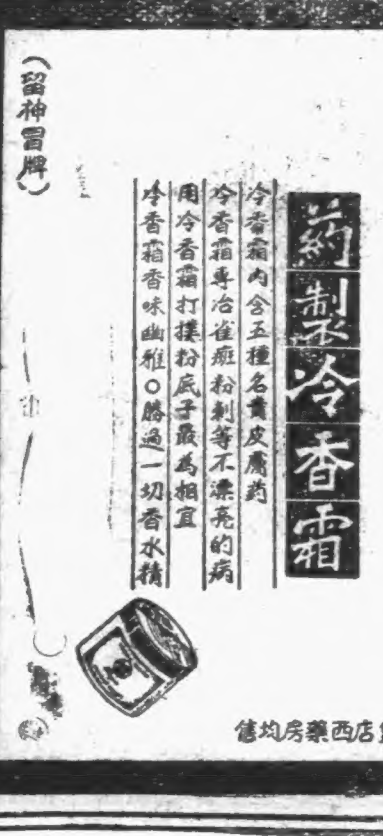 药製冷香霜
冷香霜內含五種名貴皮膚药
冷香霜專治雀斑粉刺等不漂亮的病
用冷香霜打撲粉底子最為相宜
冷香霜香味幽雅○勝過一切香水精
(留神冒牌)
店西藥房均售